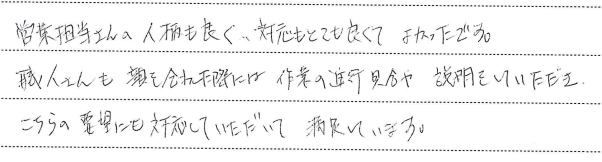 営業担当さんの人柄も良く、対応もとても良くてよかったです。
職人さんも顔を合わせた際には作業の進行具合や説明をしていただき、
こちらの要望にも対応していただいて満足しています。